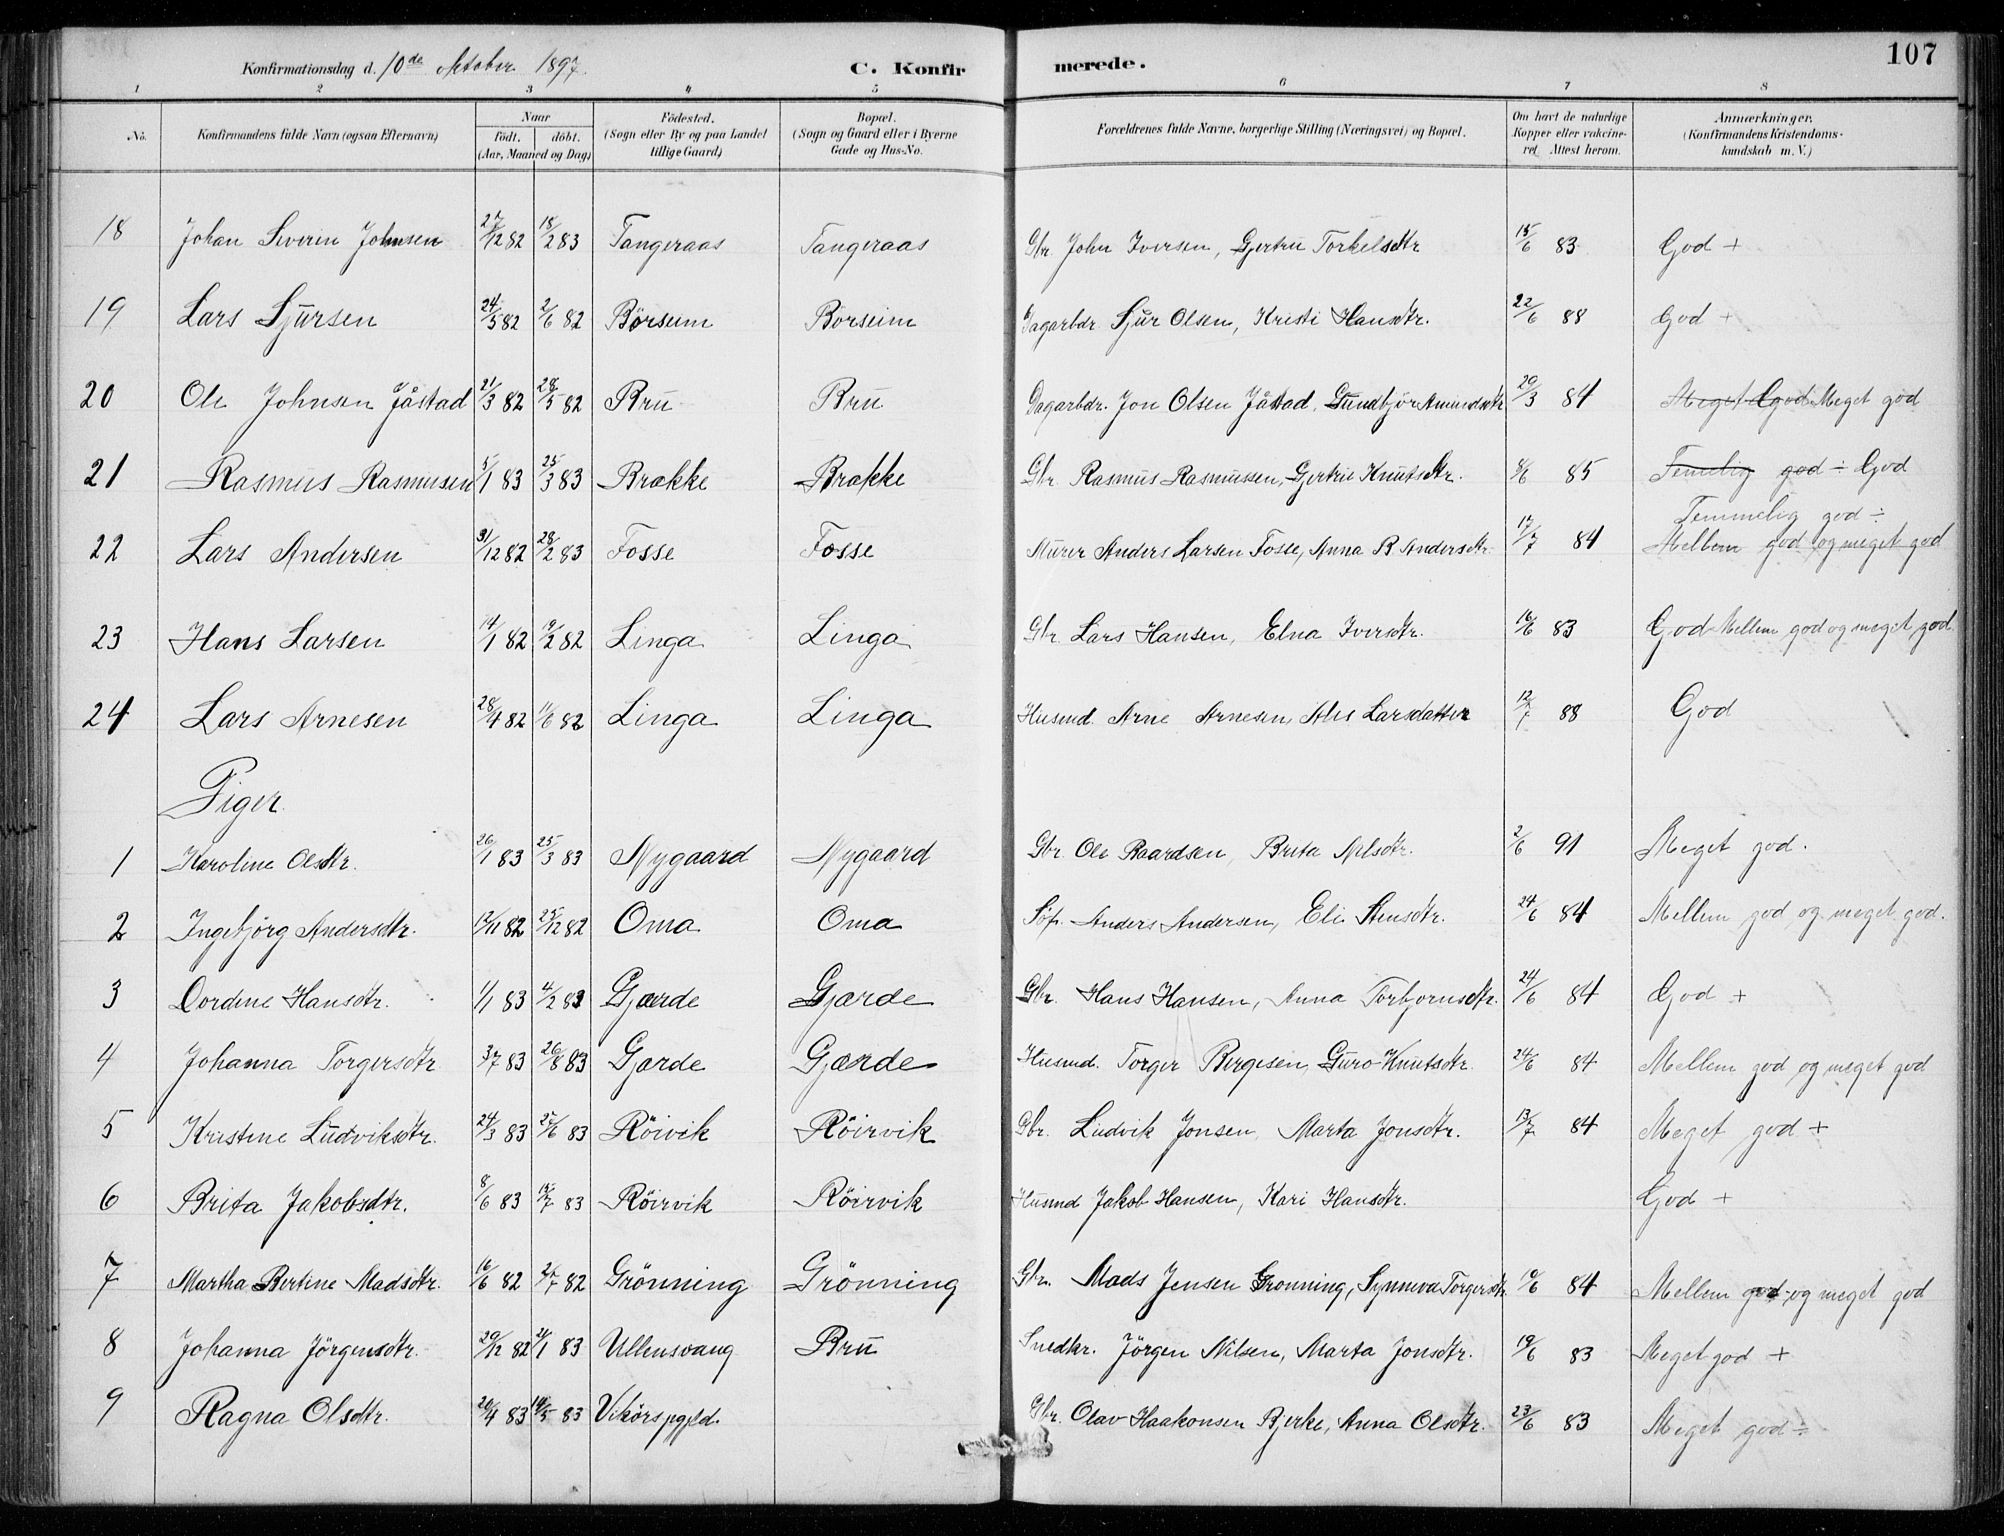 107
Konfirmationsdag d. 10de Oktober 1897. C. Konfirmerede.
1 2 3 4 5 6 7 8
No. Konfirmandens fulde Navn (ogsaa Efternavn) Naar født. døbt. (Aar, Maaned og Dag) Fødested. (Sogn eller By og paa Landet tillige Gaard) Bopæl. (Sogn og Gaard eller i Byerne Gade og Hus-No. Forældrenes fulde Navne, borgerlige Stilling (Næringsvei) og Bopæl. Om havt de naturlige Kopper eller vakcineret. Attest herom. Anmærkninger. (Konfirmandens Kristendomskundskab m. V.)
18 Johan Severin Johnsen 27/12 82 18/2 83 Tangeraas Tangeraas Gbr. John Iversen, Gjertru Torkelsdtr 15/6 83 God +
19 Lars Sjursen 24/5 82 2/6 82 Börseim Börseim Dagarbdr Sjur Olsen, Kristi Hansdtr. 22/6 88 God +
20 Ole Johnsen Jåstad 21/3 82 28/5 82 Bru Bru Dagarbdr. Jon Olsen Jåstad, Gundbjör Amundsdtr 20/3 84 Meget God Meget god
21 Rasmus Rasmusen 5/1 83 25/3 83 Brække Brække Gbr. Rasmus Rasmussen, Gjertru Knutsdtr. 8/6 85 Temelig god ÷ God
22 Lars Andersen 31/12 82 28/2 83 Fosse Fosse Murer Anders Larsen Fosse, Anna R Andersdtr. 17/7 84 Temmelig god ÷ Mellem god og meget god
23 Hans Larsen 14/1 82 9/2 82 Linga Linga Gbr. Lars Hansen, Elna Iversdtr. 16/6 83 God Mellem god og meget god
24 Lars Arnesen 28/4 82 11/6 82 Linga Linga Husmd. Arne Arnesen, Alis Larsdatter 12/7 88 God
Piger.
1 Karoline Olsdtr. 26/1 83 25/3 83 Nygaard Nygaard Gbr. Ole Baardsen, Brita Nilsdtr. 2/6 91 Meget god.
2 Ingebjörg Andersdtr. 12/11 82 25/12 82 Oma Oma Anders Andersen, Eli Stensdtr. 24/6 84 Mellem god og meget god.
3 Dordine Hansdtr. 1/1 83 4/2 83 Gjærde Gjærde Gbr. Hans Hansen, Anna Torbjörnsdtr. 24/6 84 God +
4 Johanna Torgersdtr 3/7 83 26/8 83 Gjærde Gjærde Husmd. Torger Bergesen, Guro Knutsdtr. 24/6 84 Mellem god og meget god
5 Kristine Ludviksdtr. 24/3 83 83 Röivik Röirvik Gbr. Ludvik Jonsen, Marta Jonsdtr. 13/7 84 Meget god +
6 Brita Jakobsdtr. 8/6 83 15/7 83 Röirvik Röirvik Husmd Jakob Hansen, Kari Hansdtr. God +
7 Martha Bertine Madsdtr. 16/6 82 82 Grönning Grönning Gbr. Mads Jensen Grönning, Synneva Torgersdtr 84 Mellem god og meget god
8 Johanna Jörgensdtr. 20/12 82 21/1 83 Ullensvang Bru Snedkr. Jörgen Nilsen, Marta Jonsdtr. 19/6 83 Meget god +
9 Ragna Olsdtr. 20/4 83 14/5 83 Vikörs pgjld. Gbr. Olav Haakonsen Bjerke, Anna Olsdtr. 23/6 83 Meget god ÷